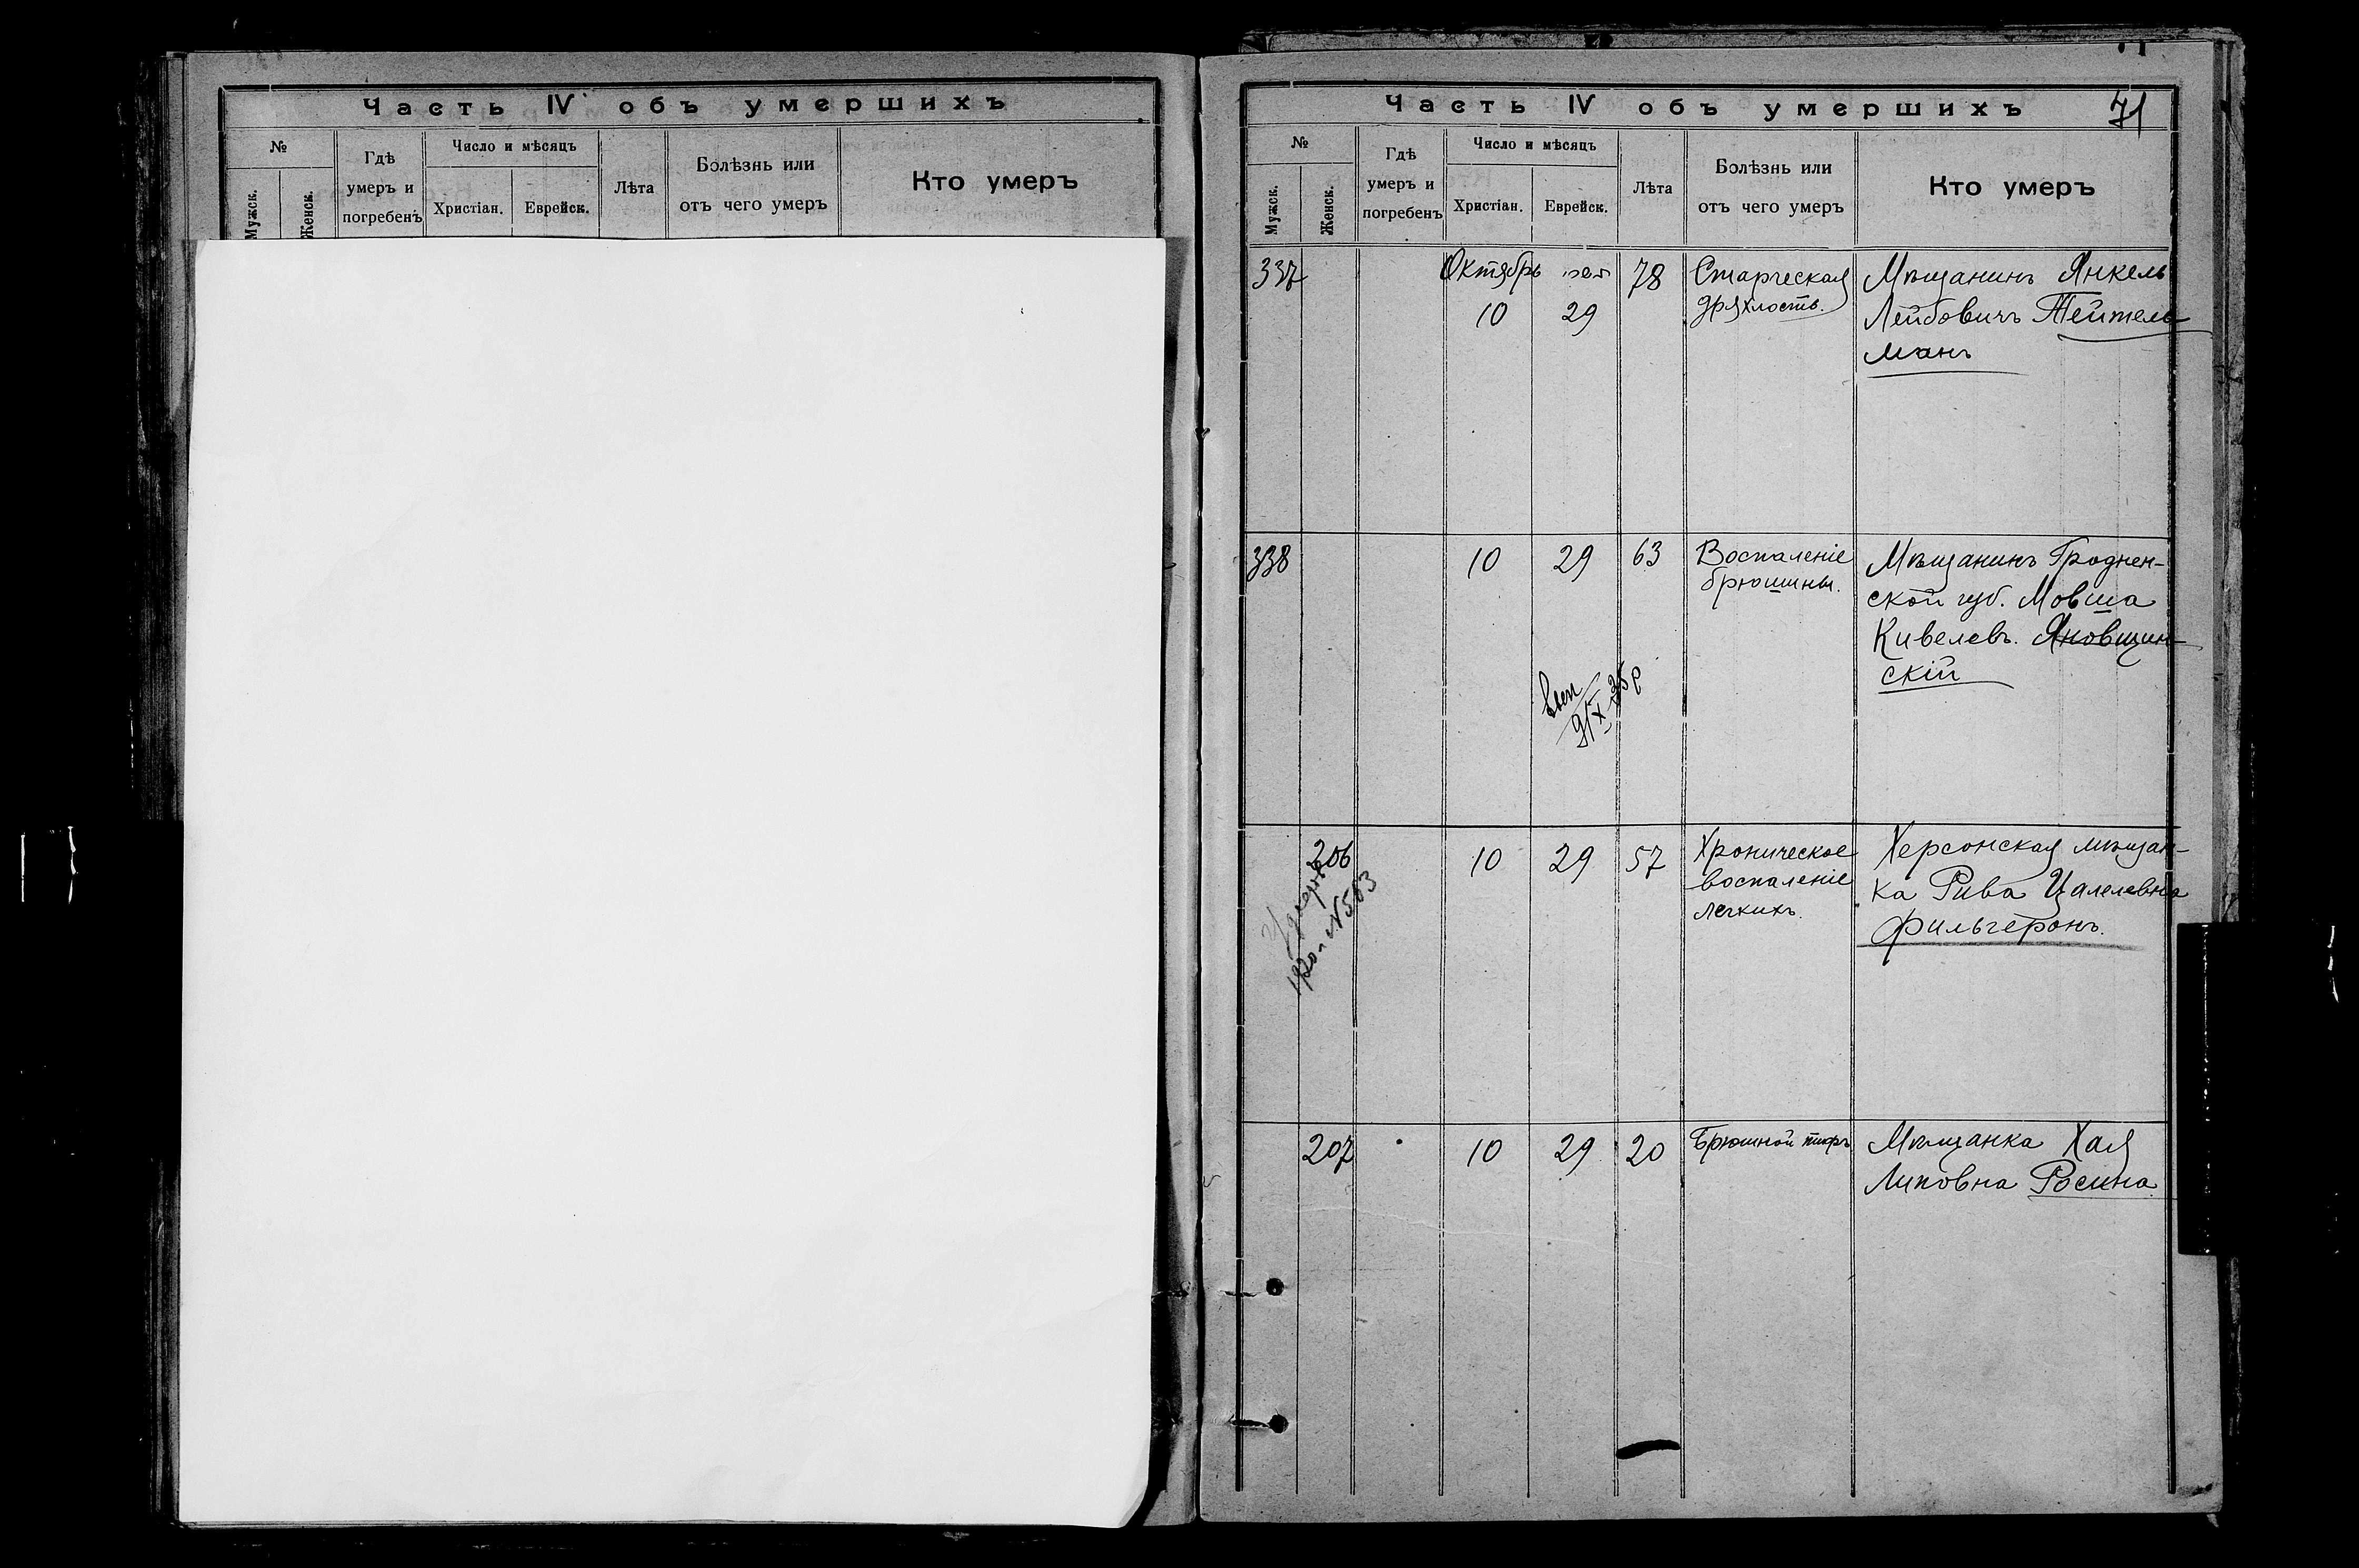 Часть IV объ умершихъ
№
Мужск.
Женск.
Гдѣ
умеръ и
погребенъ
Число и мѣсяцъ
Христіан.
Еврейск.
Лѣта
Болѣзнь или
отъ чего умеръ
Кто умеръ
Часть IV объ умершихъ
71
№
Мужск.
Женск.
Гдѣ
умеръ и
погребенъ
Число и мѣсяцъ
Христіан.
Еврейск.
Лѣта
Болѣзнь или
отъ чего умеръ
Кто умеръ
337
Октябрь
10
29
78
Старческая
дряхлость.
Мѣщанинъ Янкель
Лейбовичъ Тейтель
манъ
338
10
29
63
Воспаленіе
брюшины.
Мѣщанинъ Гроднен-
ской губ. Мовша
Кивелевъ. Яновщин-
скій
206
1920 №503
10
29
57
Хроническое
воспаленіе
легкихъ.
Херсонская мѣщан-
ка Рива Цалелевна
Фильгеронъ.
207
10
29
20
Брюшной тифъ
Мѣщанка Хая
Липовна Росина